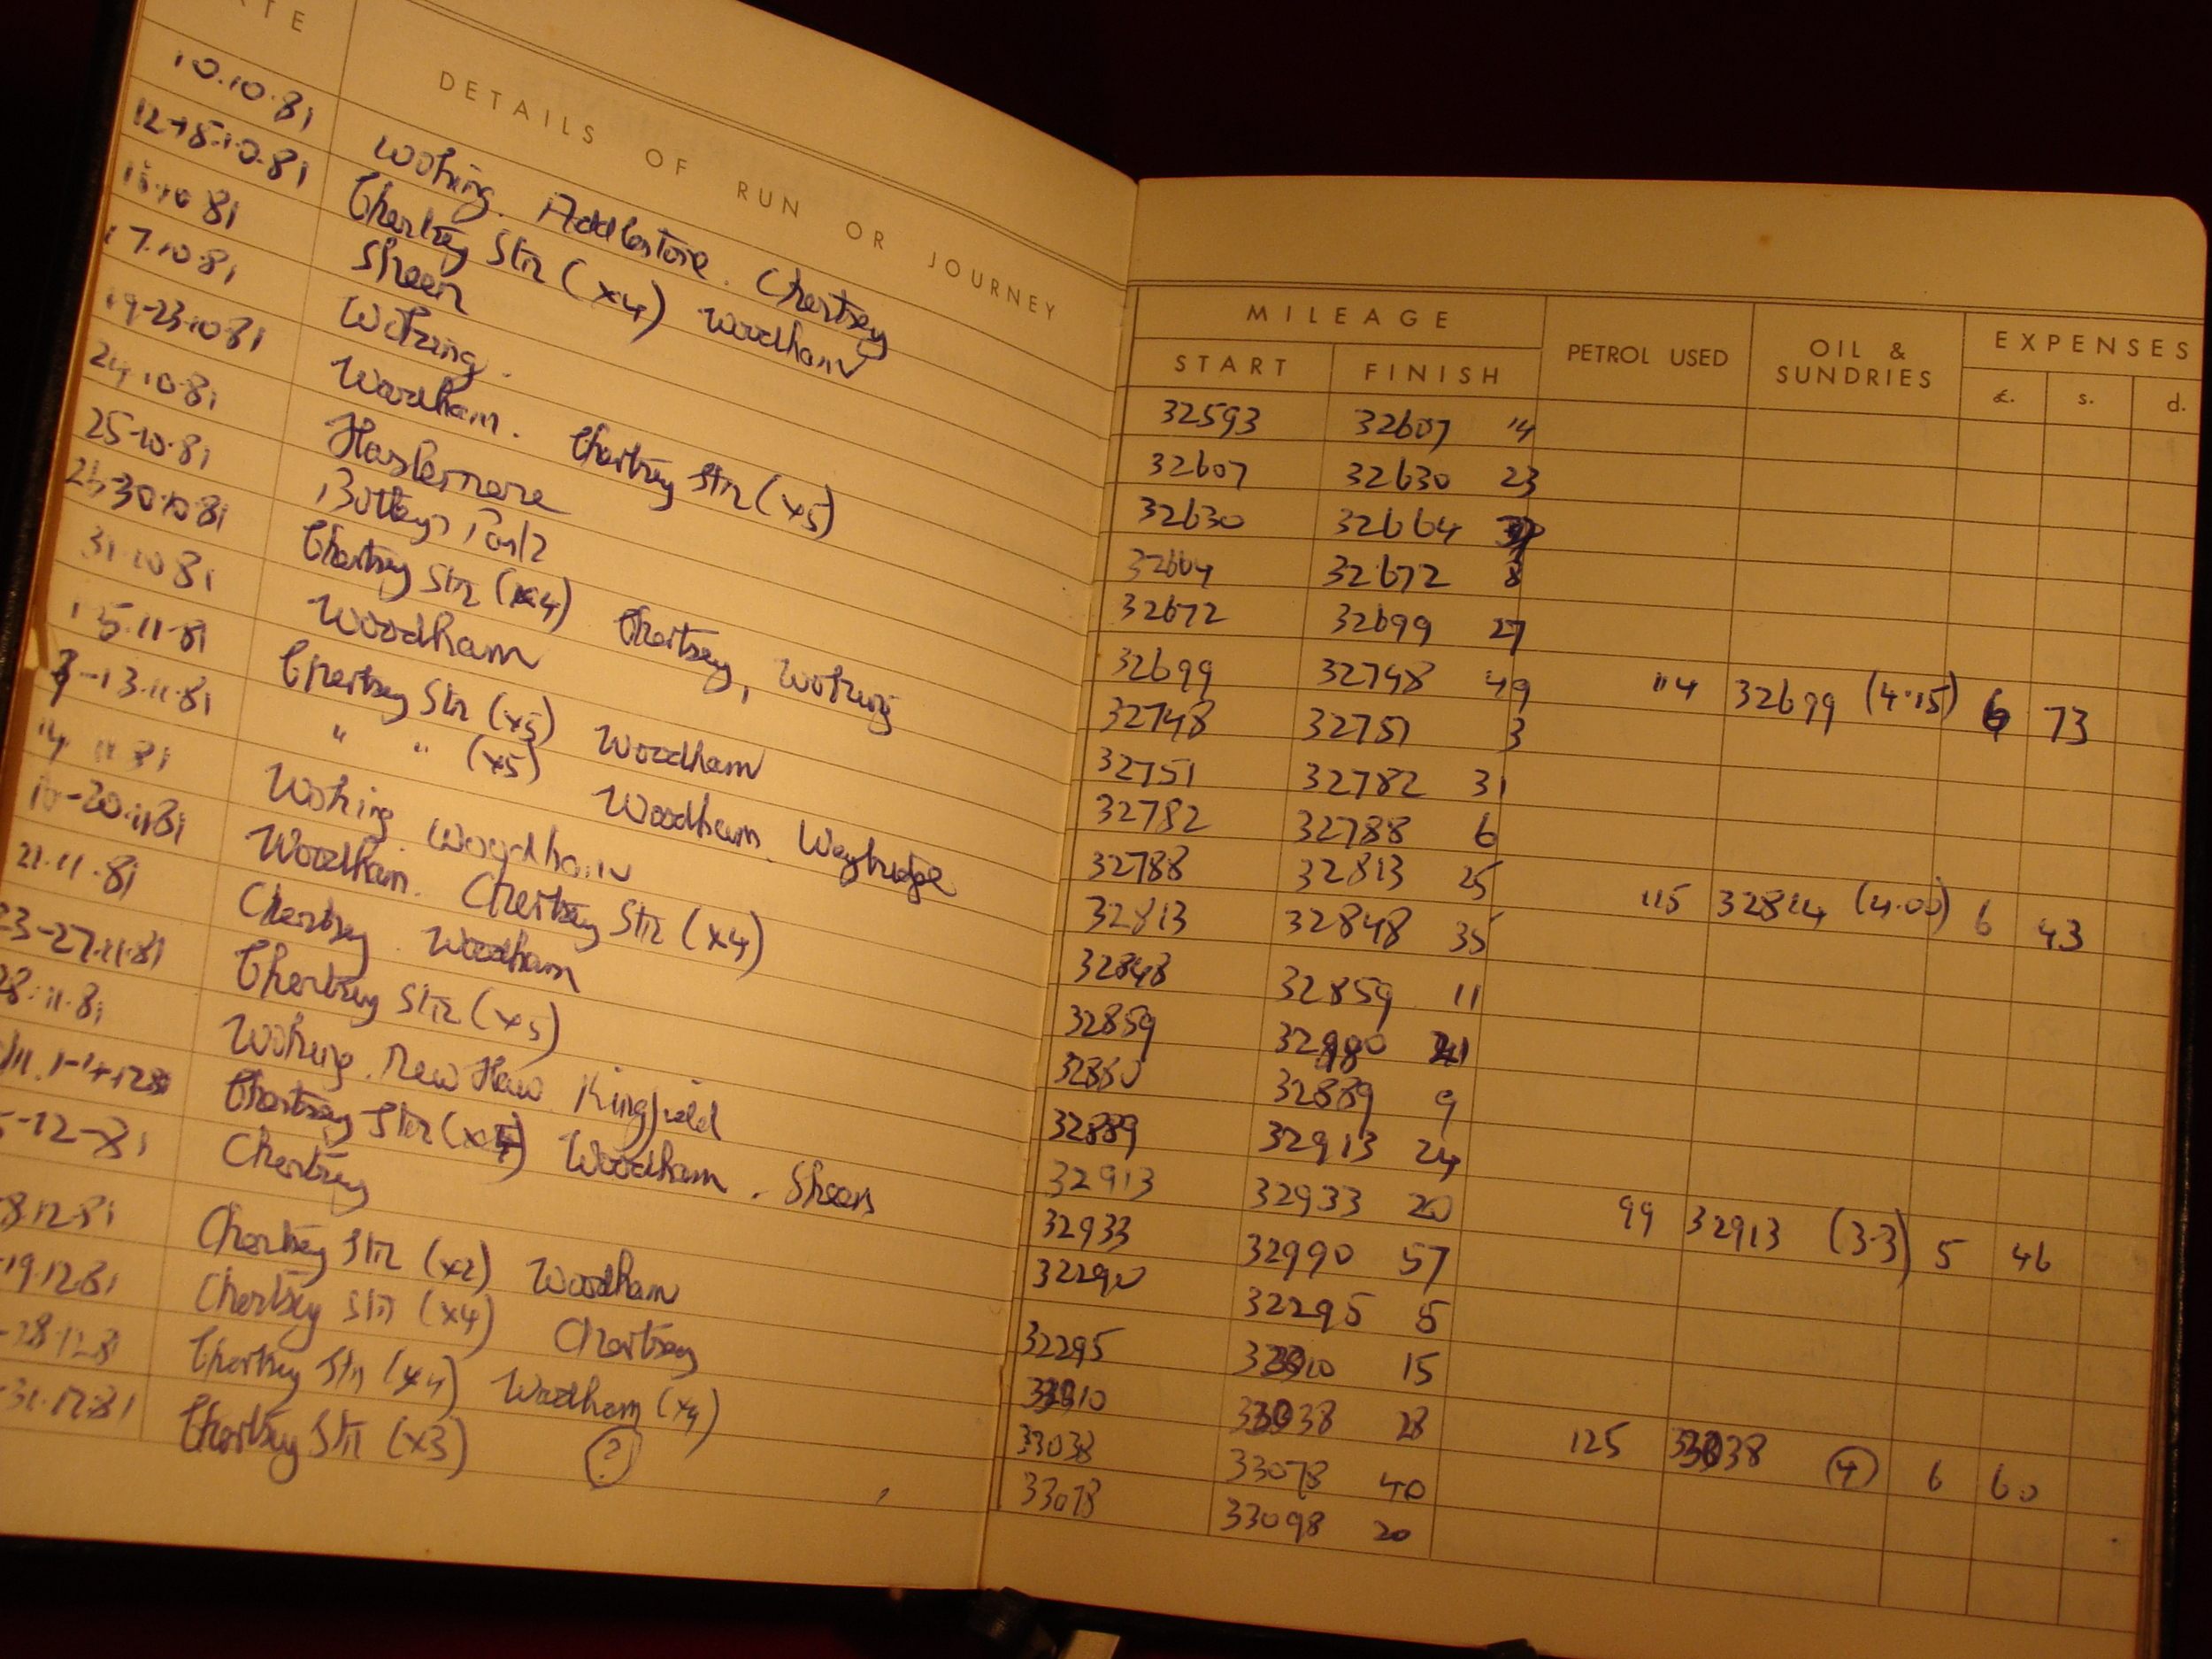 TE
DETAILS OF RUN OR JOURNEY
10.10.81 Woking. Addlestone. Chertsey
12-15.10.81 Chertsey Stn (x4) Woodham
16.10 81 Sheen
17.10.81 Woking.
19-23.10.81 Woodham. Chertsey Stn (x5)
24.10.81 Haslemere
25.10.81 Botleys Park
26-30.10.81 Chertsey Stn (x4) Chertsey, Woking
31.10 81 Woodham
5.11.81 Chertsey Stn (x5) Woodham
-13.11.81 " " (x5) Woodham. Weybridge
14 11 81 Woking. Woodham
16-20.11.81 Woodham. Chertsey Stn (x4)
21.11.81 Chertsey. Woodham
3-27.11.81 Chertsey Stn (x5)
28.11.81 Woking. New Haw. Kingfield
Chertsey Stn Woodham. Sheen
-12-81 Chertsey
8.12.81 Chertsey Stn (x2) Woodham
-19.12.81 Chertsey Stn (x4) Chertsey
-28.12.81 Chertsey Stn (x4) Woodham (x4)
-31.12.81 Chertsey Stn (x3) (?)
MILEAGE PETROL USED OIL & SUNDRIES EXPENSES
START FINISH £. s. d.
32593 32607 14
32607 32630 23
32630 32664
32664 32672 8
32672 32699 27
32699 32748 49 114 32699 (4.15) 6 73
32748 32751 3
32751 32782 31
32782 32788 6
32788 32813 25
32813 32848 35 115 32814 (4.00) 6 43
32848 32859 11
32859
32880 32889 9
32889 32913 24
32913 32933 20 99 32913 (3.3) 5 46
32933 32990 57
32290 32295 5
32295 15
28 125 (4) 6 60
33038 33078 40
33078 33098 20